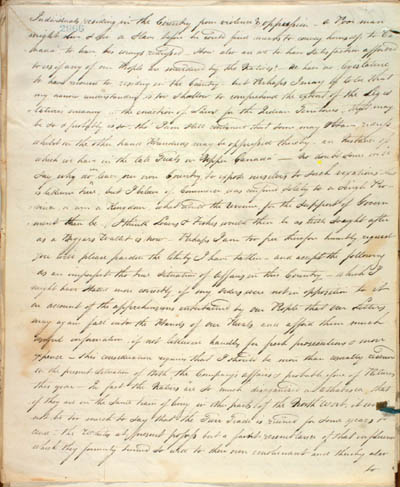 Individuals residing in the Country from violence & oppression - a Poor man
2866
might live & die a Slave before he could find means to convey himself to Ca
nada - to have his wrongs redressed - How also are we to have Satisfaction afforded
to us if any of our People are murdered by the Natives? We have no Legislature
to hand down to residing in the Country - but Perhaps I may be told that
my narrow understanding is too shallow to comprehend the extent of the Legis
latures meaning - the enaction of Laws for the Indian Territories, that may
be so & probably is so - the Law shall content that some may obtain redress
whilst on the other hand thousands may be oppressed thereby - an instance of
which we have in the late Trials in Upper Canada - Some will
say why do we leave our own Country to expose ourselves to such vexations, this
is also true, but if Men of Commerce was confined solely to a single Pro
vince in a Kingdom what would the revenue for the Support of Govern
ment then be, I think Loaves & Fishes would then be as little sought after
as a Beggars Wallet is now - Perhaps I am too free therefore humbly request
you will please pardon the liberty I have taken - and accept the following
as an imperfect tho true Situation of Affairs in this Country - which I
might have stated more correctly if my Orders were not in opposition to it
on account of the apprehensions entertained by our People that our Letters
may again fall into the Hands of our Rivals and afford them much
useful information if not sufficient handle for fresh prosecutions & more
expence - this consideration requires that I should be more than usually reserved
in the present Situation of both the Companys affairs & probable issue of Returns
this year - In fact the Natives are so much disregarded in Athabasca, that
if they are in the same train of living in other parts of the North West, it would
not be too much to say that the Fur Trade is ruined for some years to
come - the Whites at present possess but a faint resemblance of that influence
which they formerly turned so well to their own emolument and thereby also
to